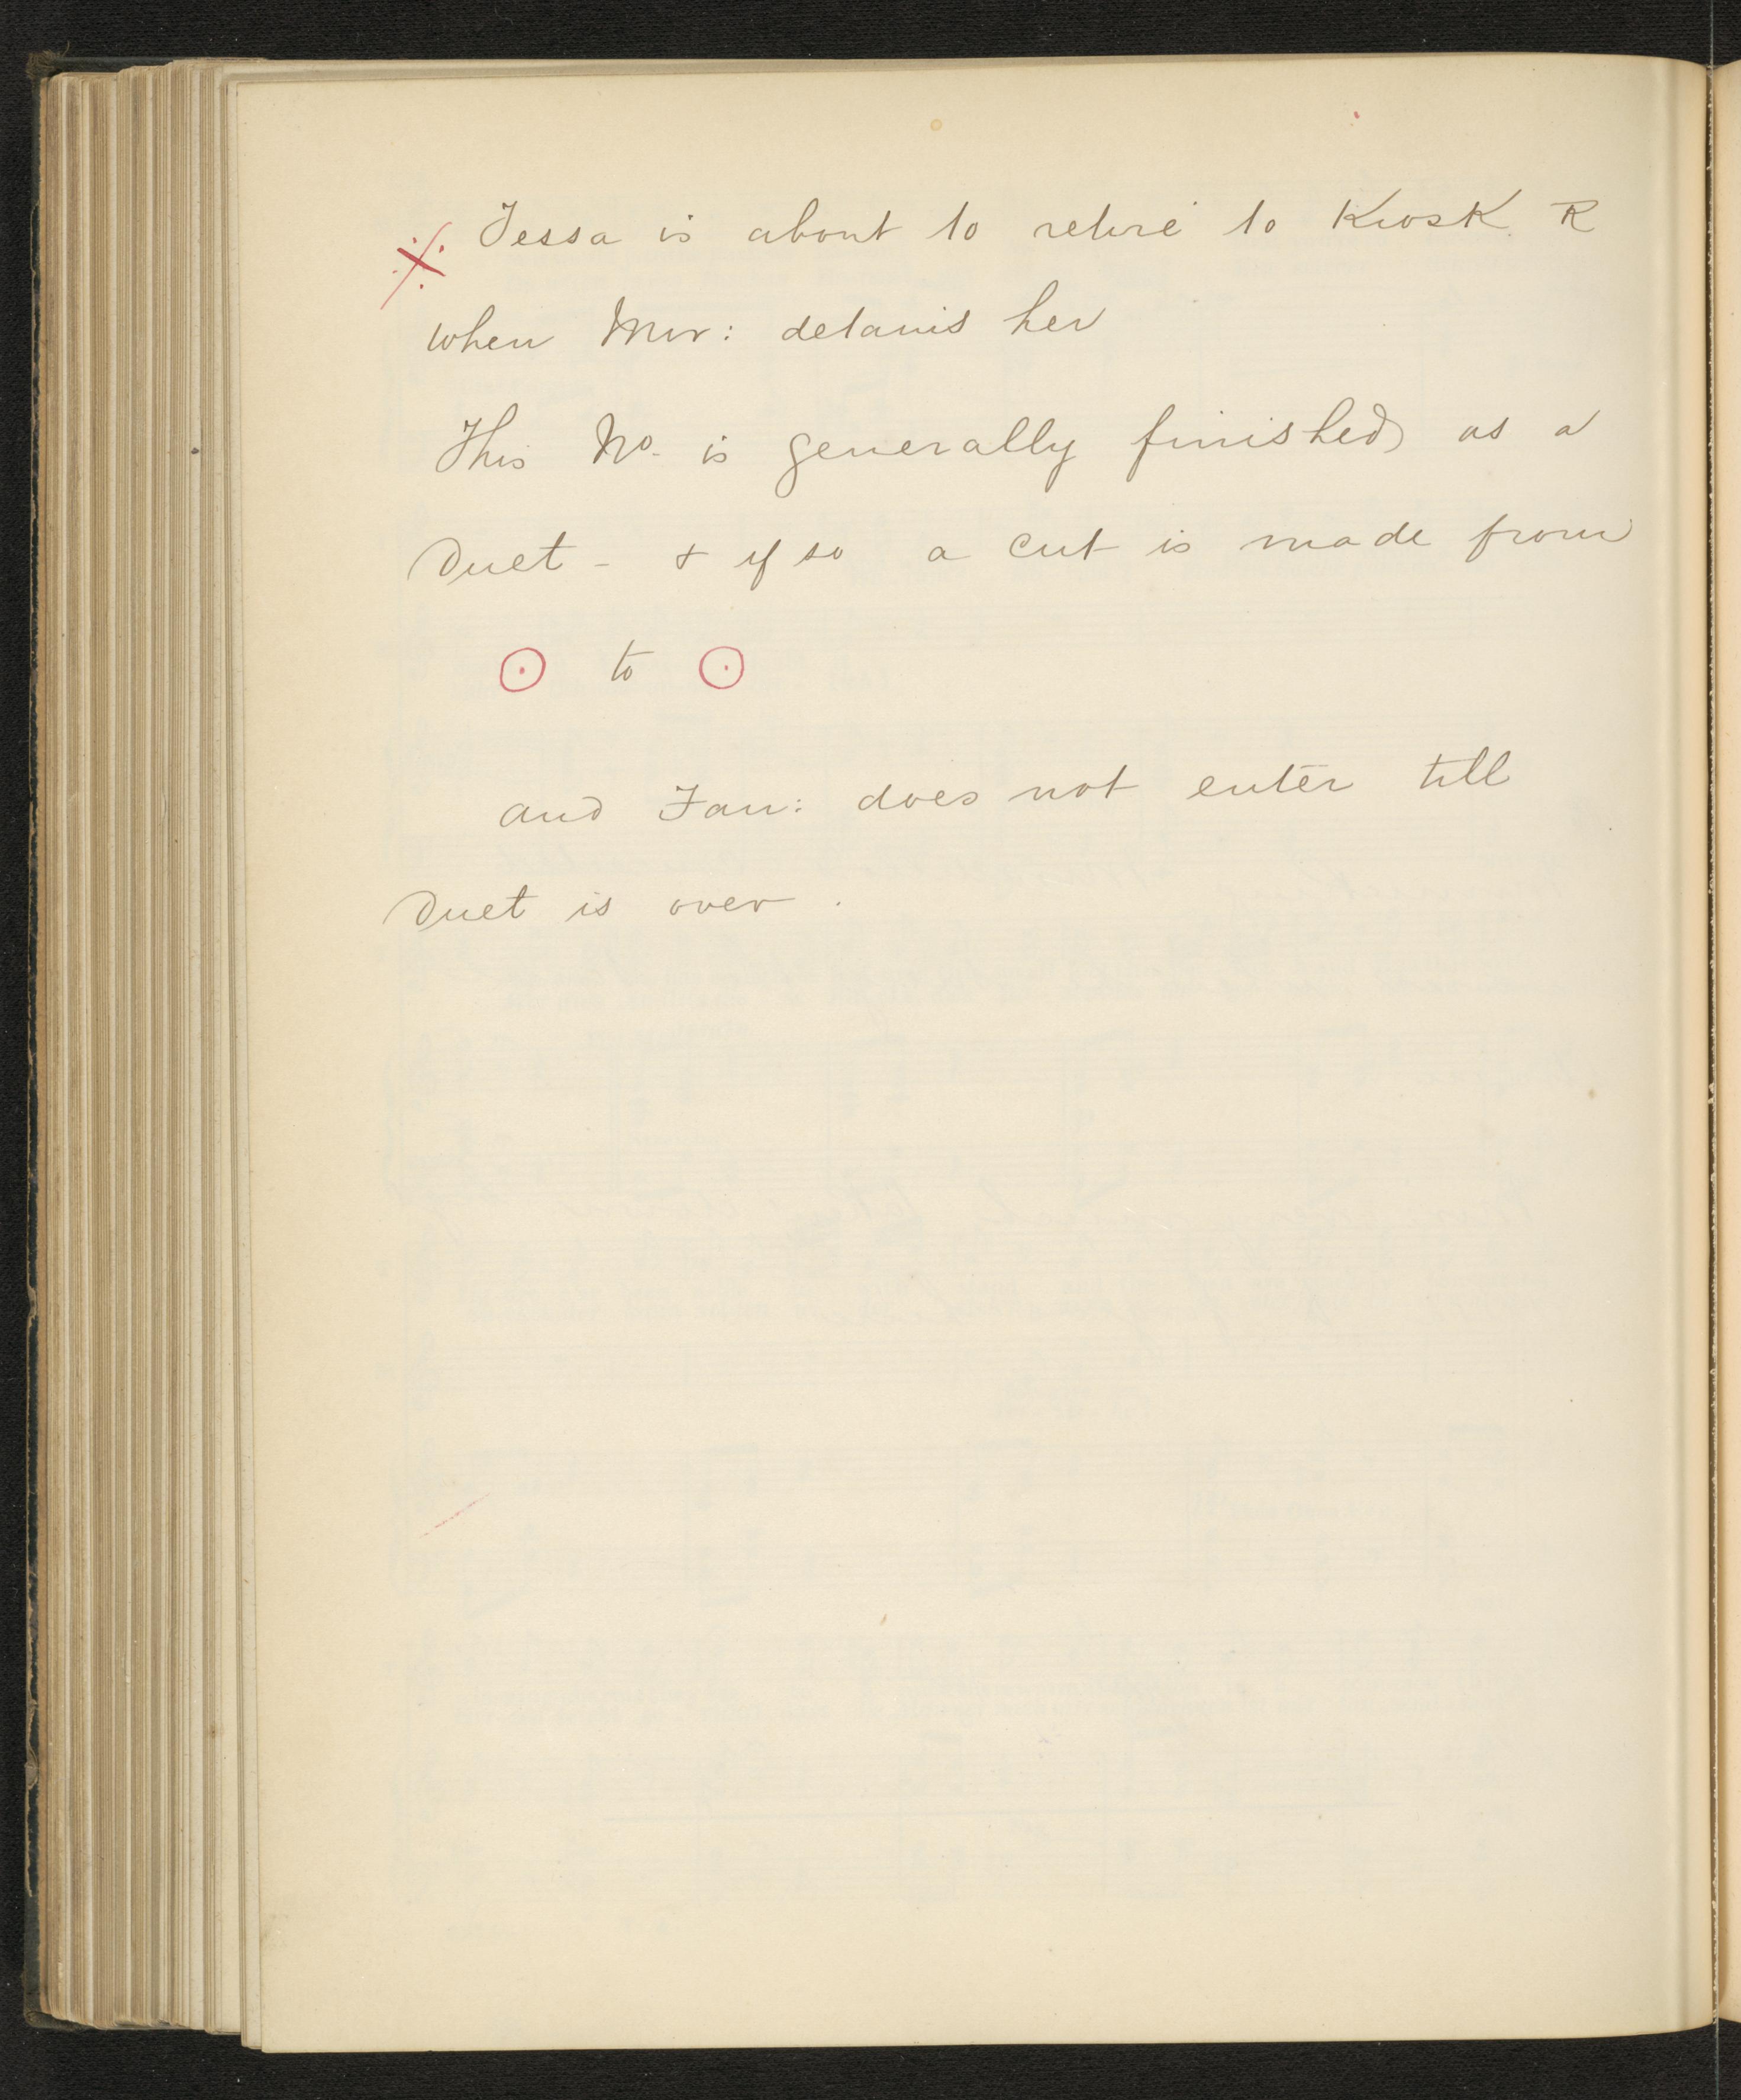 Tessa is about to retire to Kiosk R
when Mir: detains her
This No. is generally finished as a
Duet - & if so a cut is made from
⊙ to ⊙
and Ian: does not enter till
Duet is over.